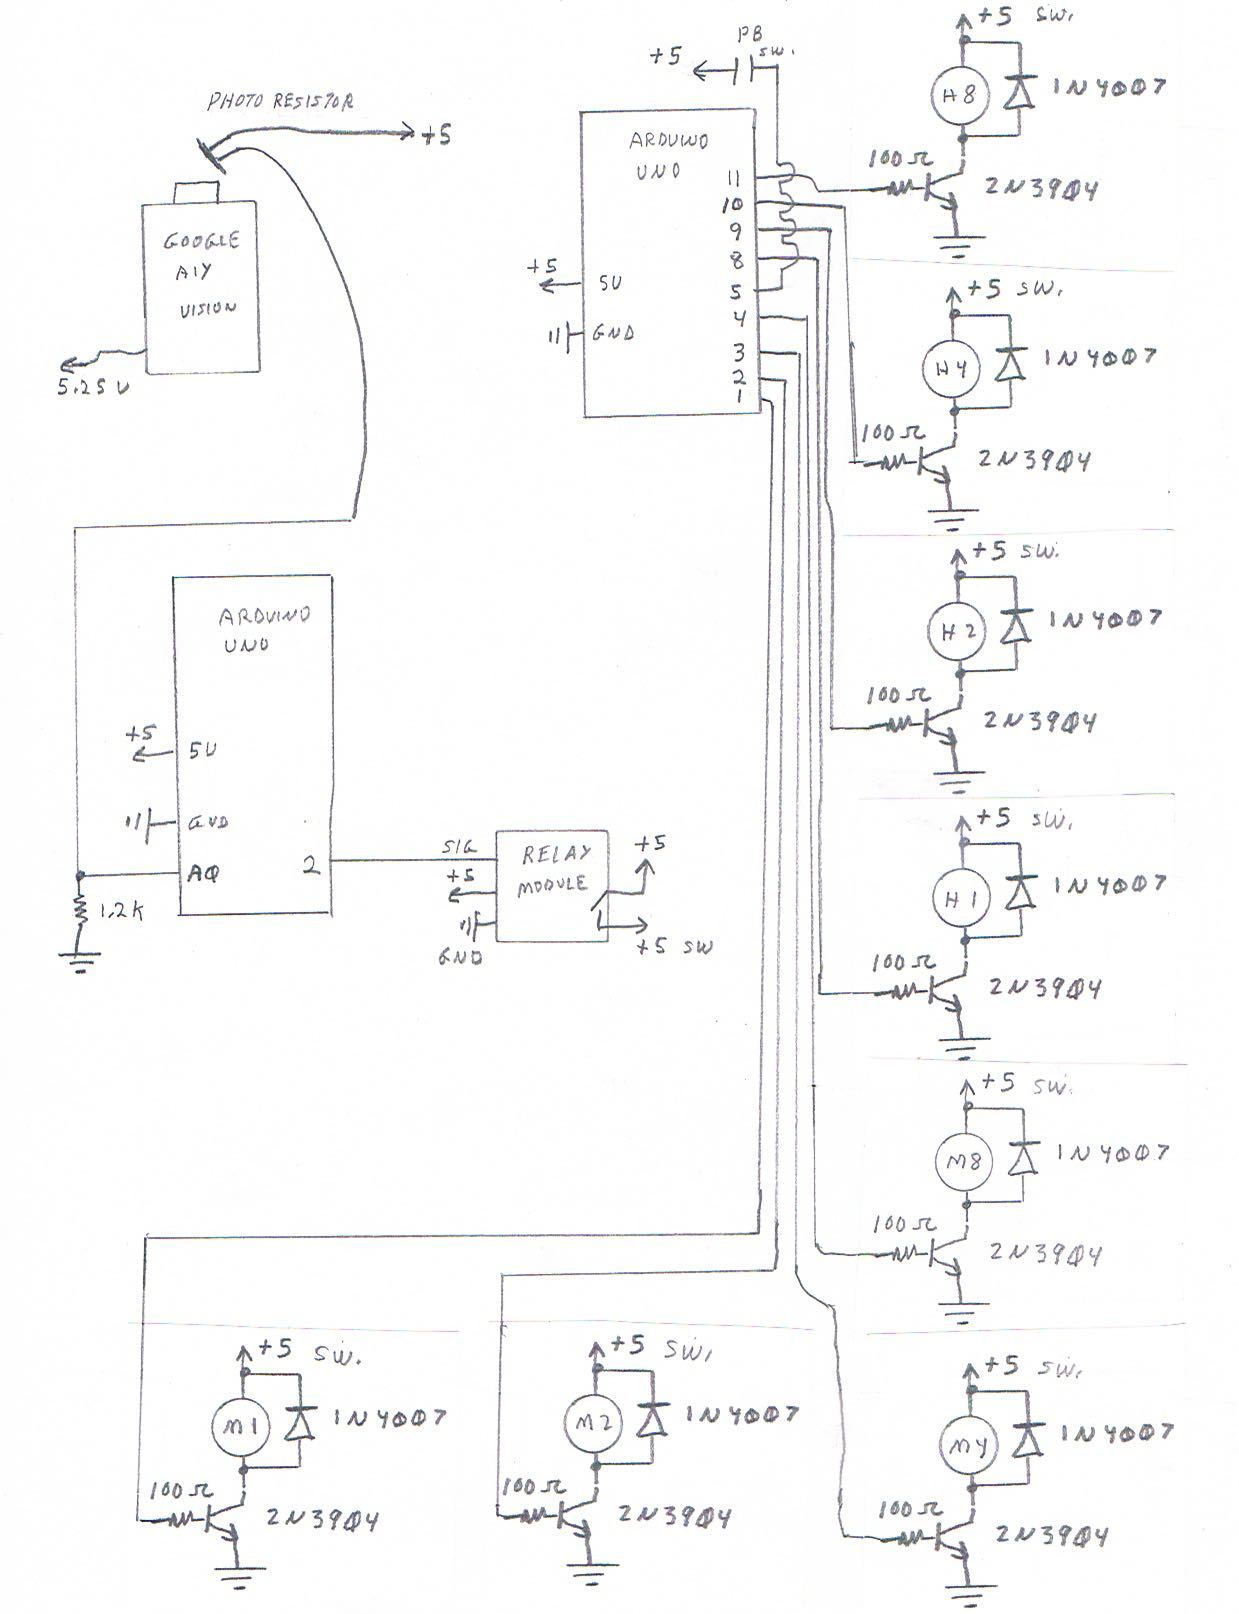 PHOTO RESISTOR
+5
GOOGLE
AIY
VISION
5.25V
PB
SW.
+5
ARDUINO
UNO
11
10
9
8
5
4
3
2
1
+5
5V
GND
+5 SW.
H8
1N4007
100Ω
2N3904
+5 SW.
H4
1N4007
100Ω
2N3904
+5 SW.
H2
1N4007
100Ω
2N3904
+5 SW.
H1
1N4007
100Ω
2N3904
+5 SW.
M8
1N4007
100Ω
2N3904
+5 SW.
M4
1N4007
100Ω
2N3904
ARDUINO
UNO
+5
5V
GND
A0
2
1.2K
SIG
+5
GND
RELAY
MODULE
+5
+5 SW
+5 SW.
M1
1N4007
100Ω
2N3904
+5 SW.
M2
1N4007
100Ω
2N3904